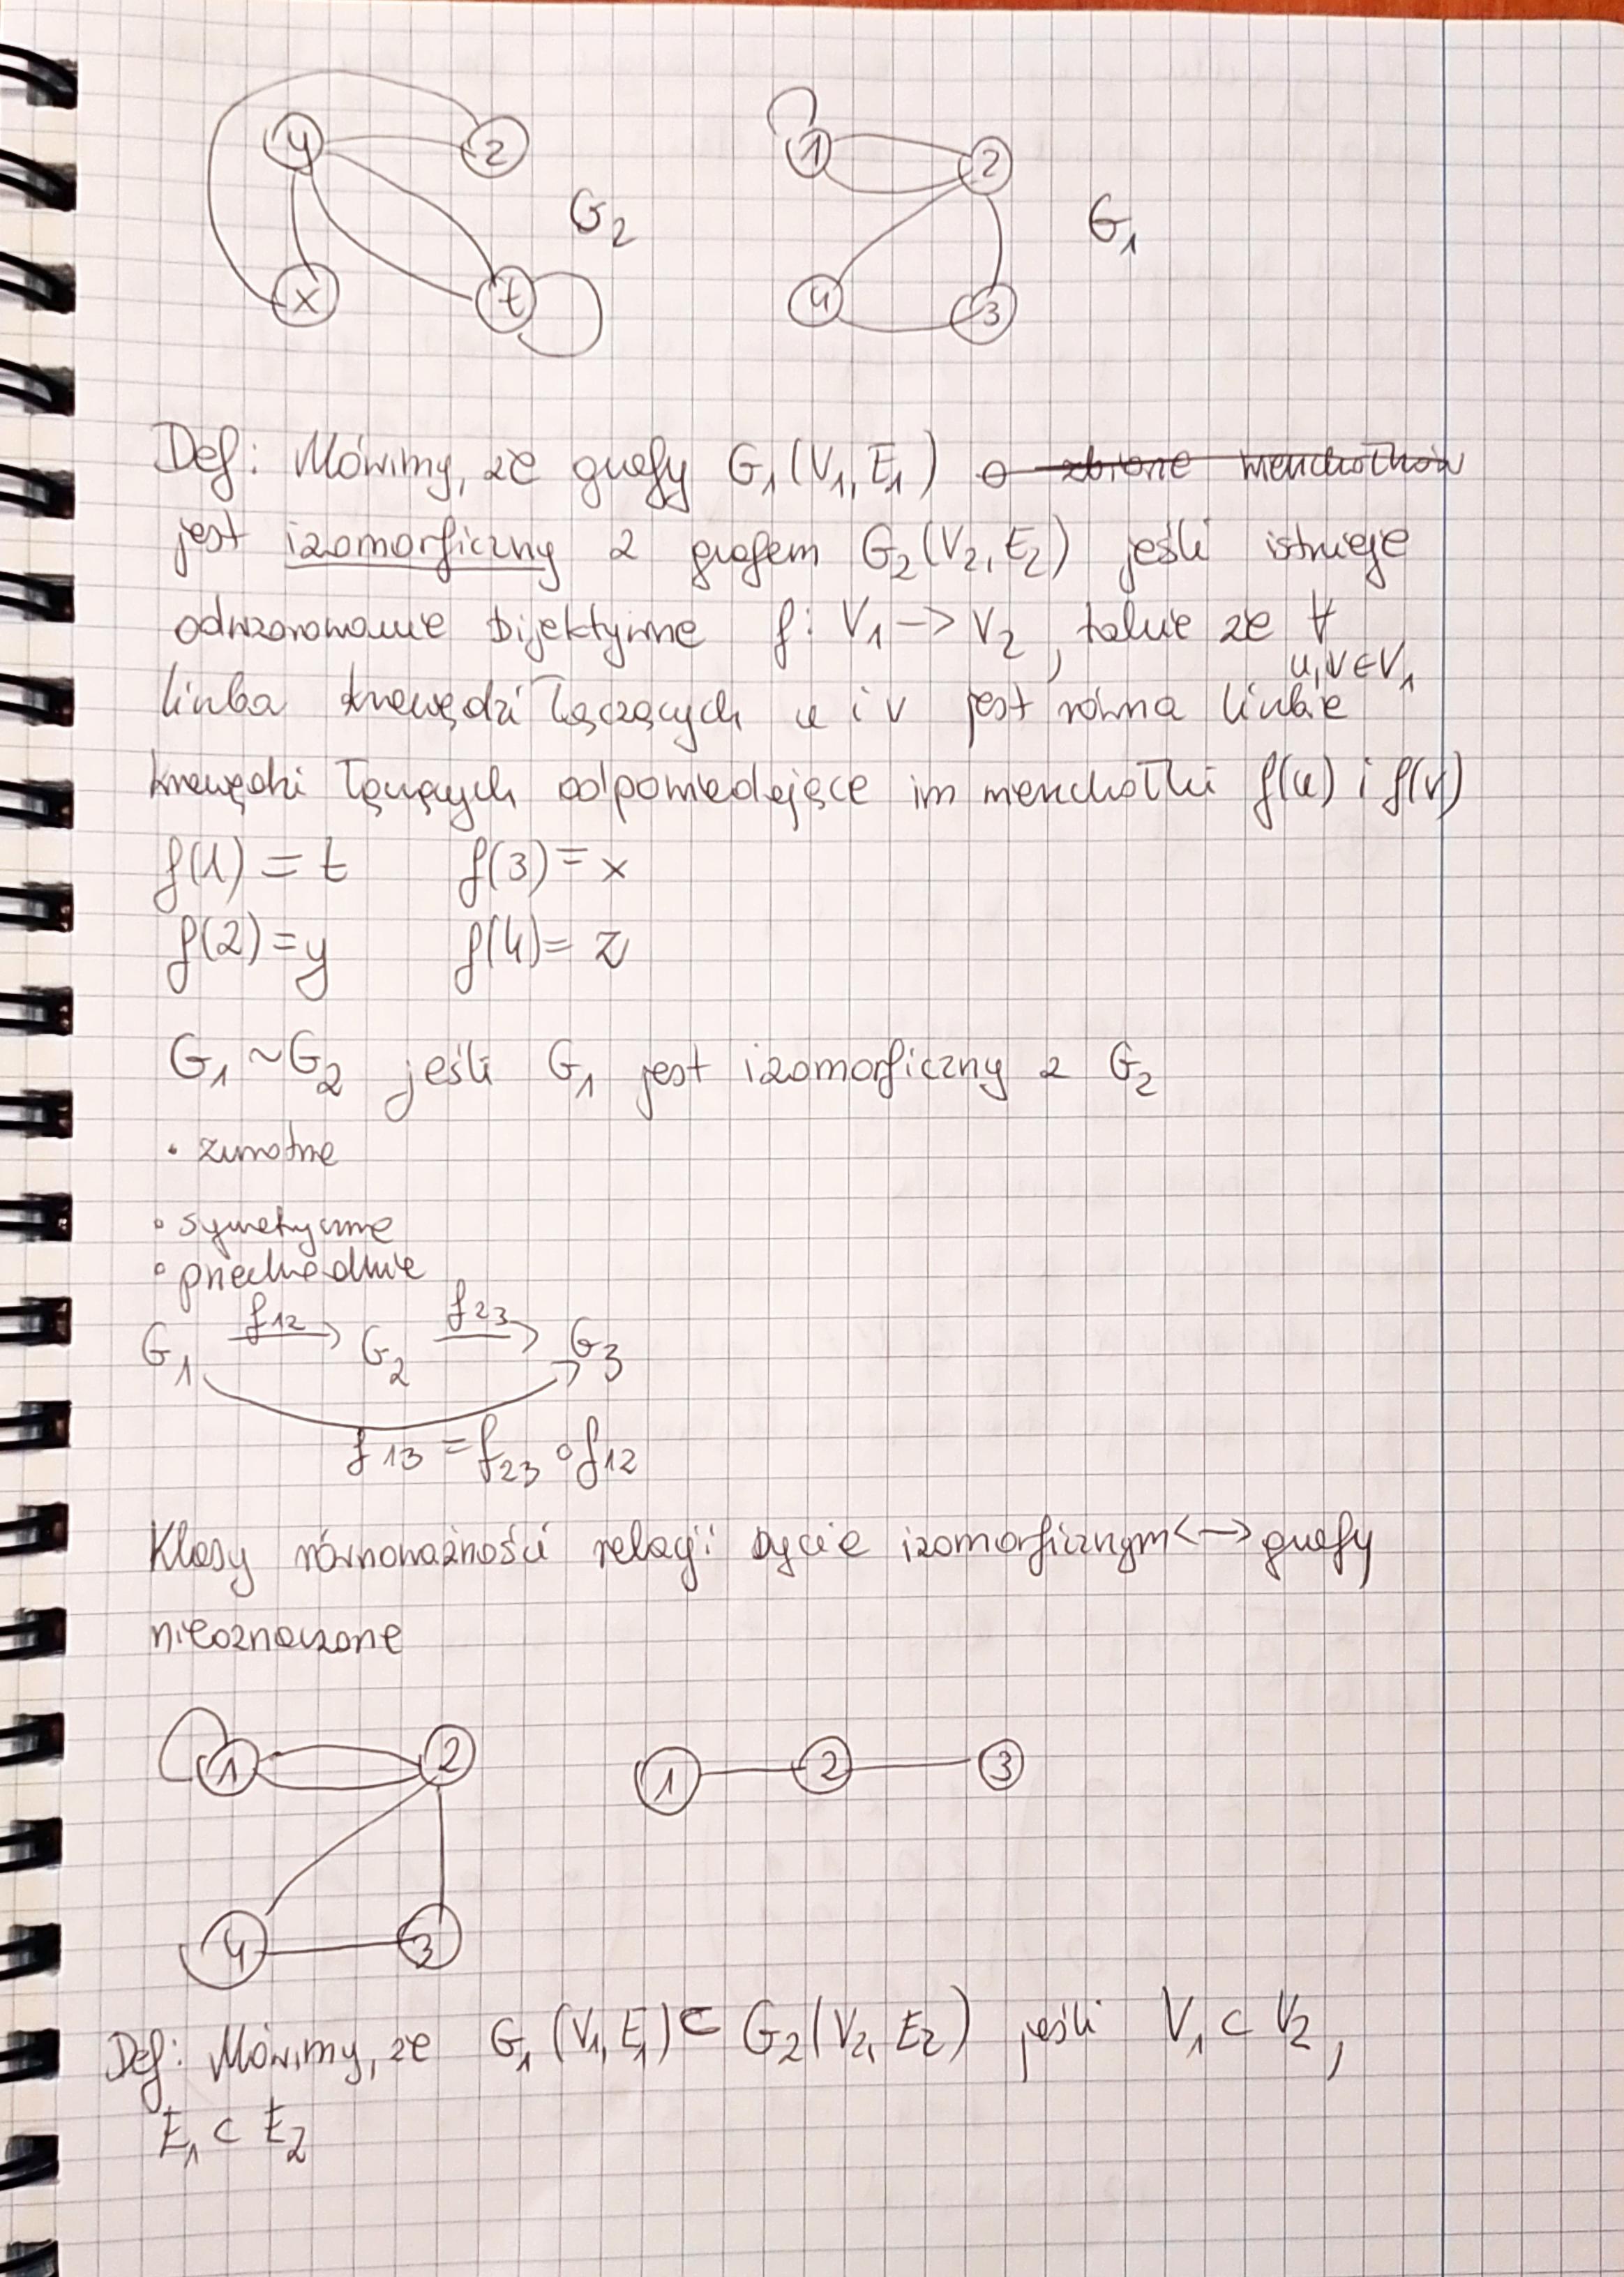 y z G₂ 1 2 G₁
x t 4 3
Def: Mówimy, że grafy G₁(V₁, E₁) o zbiorze wierzchołków
jest izomorficzny z grafem G₂(V₂, E₂) jeśli istnieje
odwzorowanie bijektywne f: V₁ -> V₂, takie że ∀
u,v∈V₁
liczba krawędzi łączących u i v jest równa liczbie
krawędzi łączących odpowiadające im wierzchołki f(u) i f(v)
f(1) = t f(3) = x
f(2) = y f(4) = z
G₁ ~ G₂ jeśli G₁ jest izomorficzny z G₂
• zwrotne
• symetryczne
• przechodnie
G₁ f₁₂ → G₂ f₂₃ → G₃
f₁₃ = f₂₃ ∘ f₁₂
Klasy równoważności relacji bycie izomorficznym <-> grafy
nieoznaczone
1 2 1 2 3
4 3
Def: Mówimy, że G₁(V₁, E₁) ⊂ G₂(V₂, E₂) jeśli V₁ ⊂ V₂,
E₁ ⊂ E₂